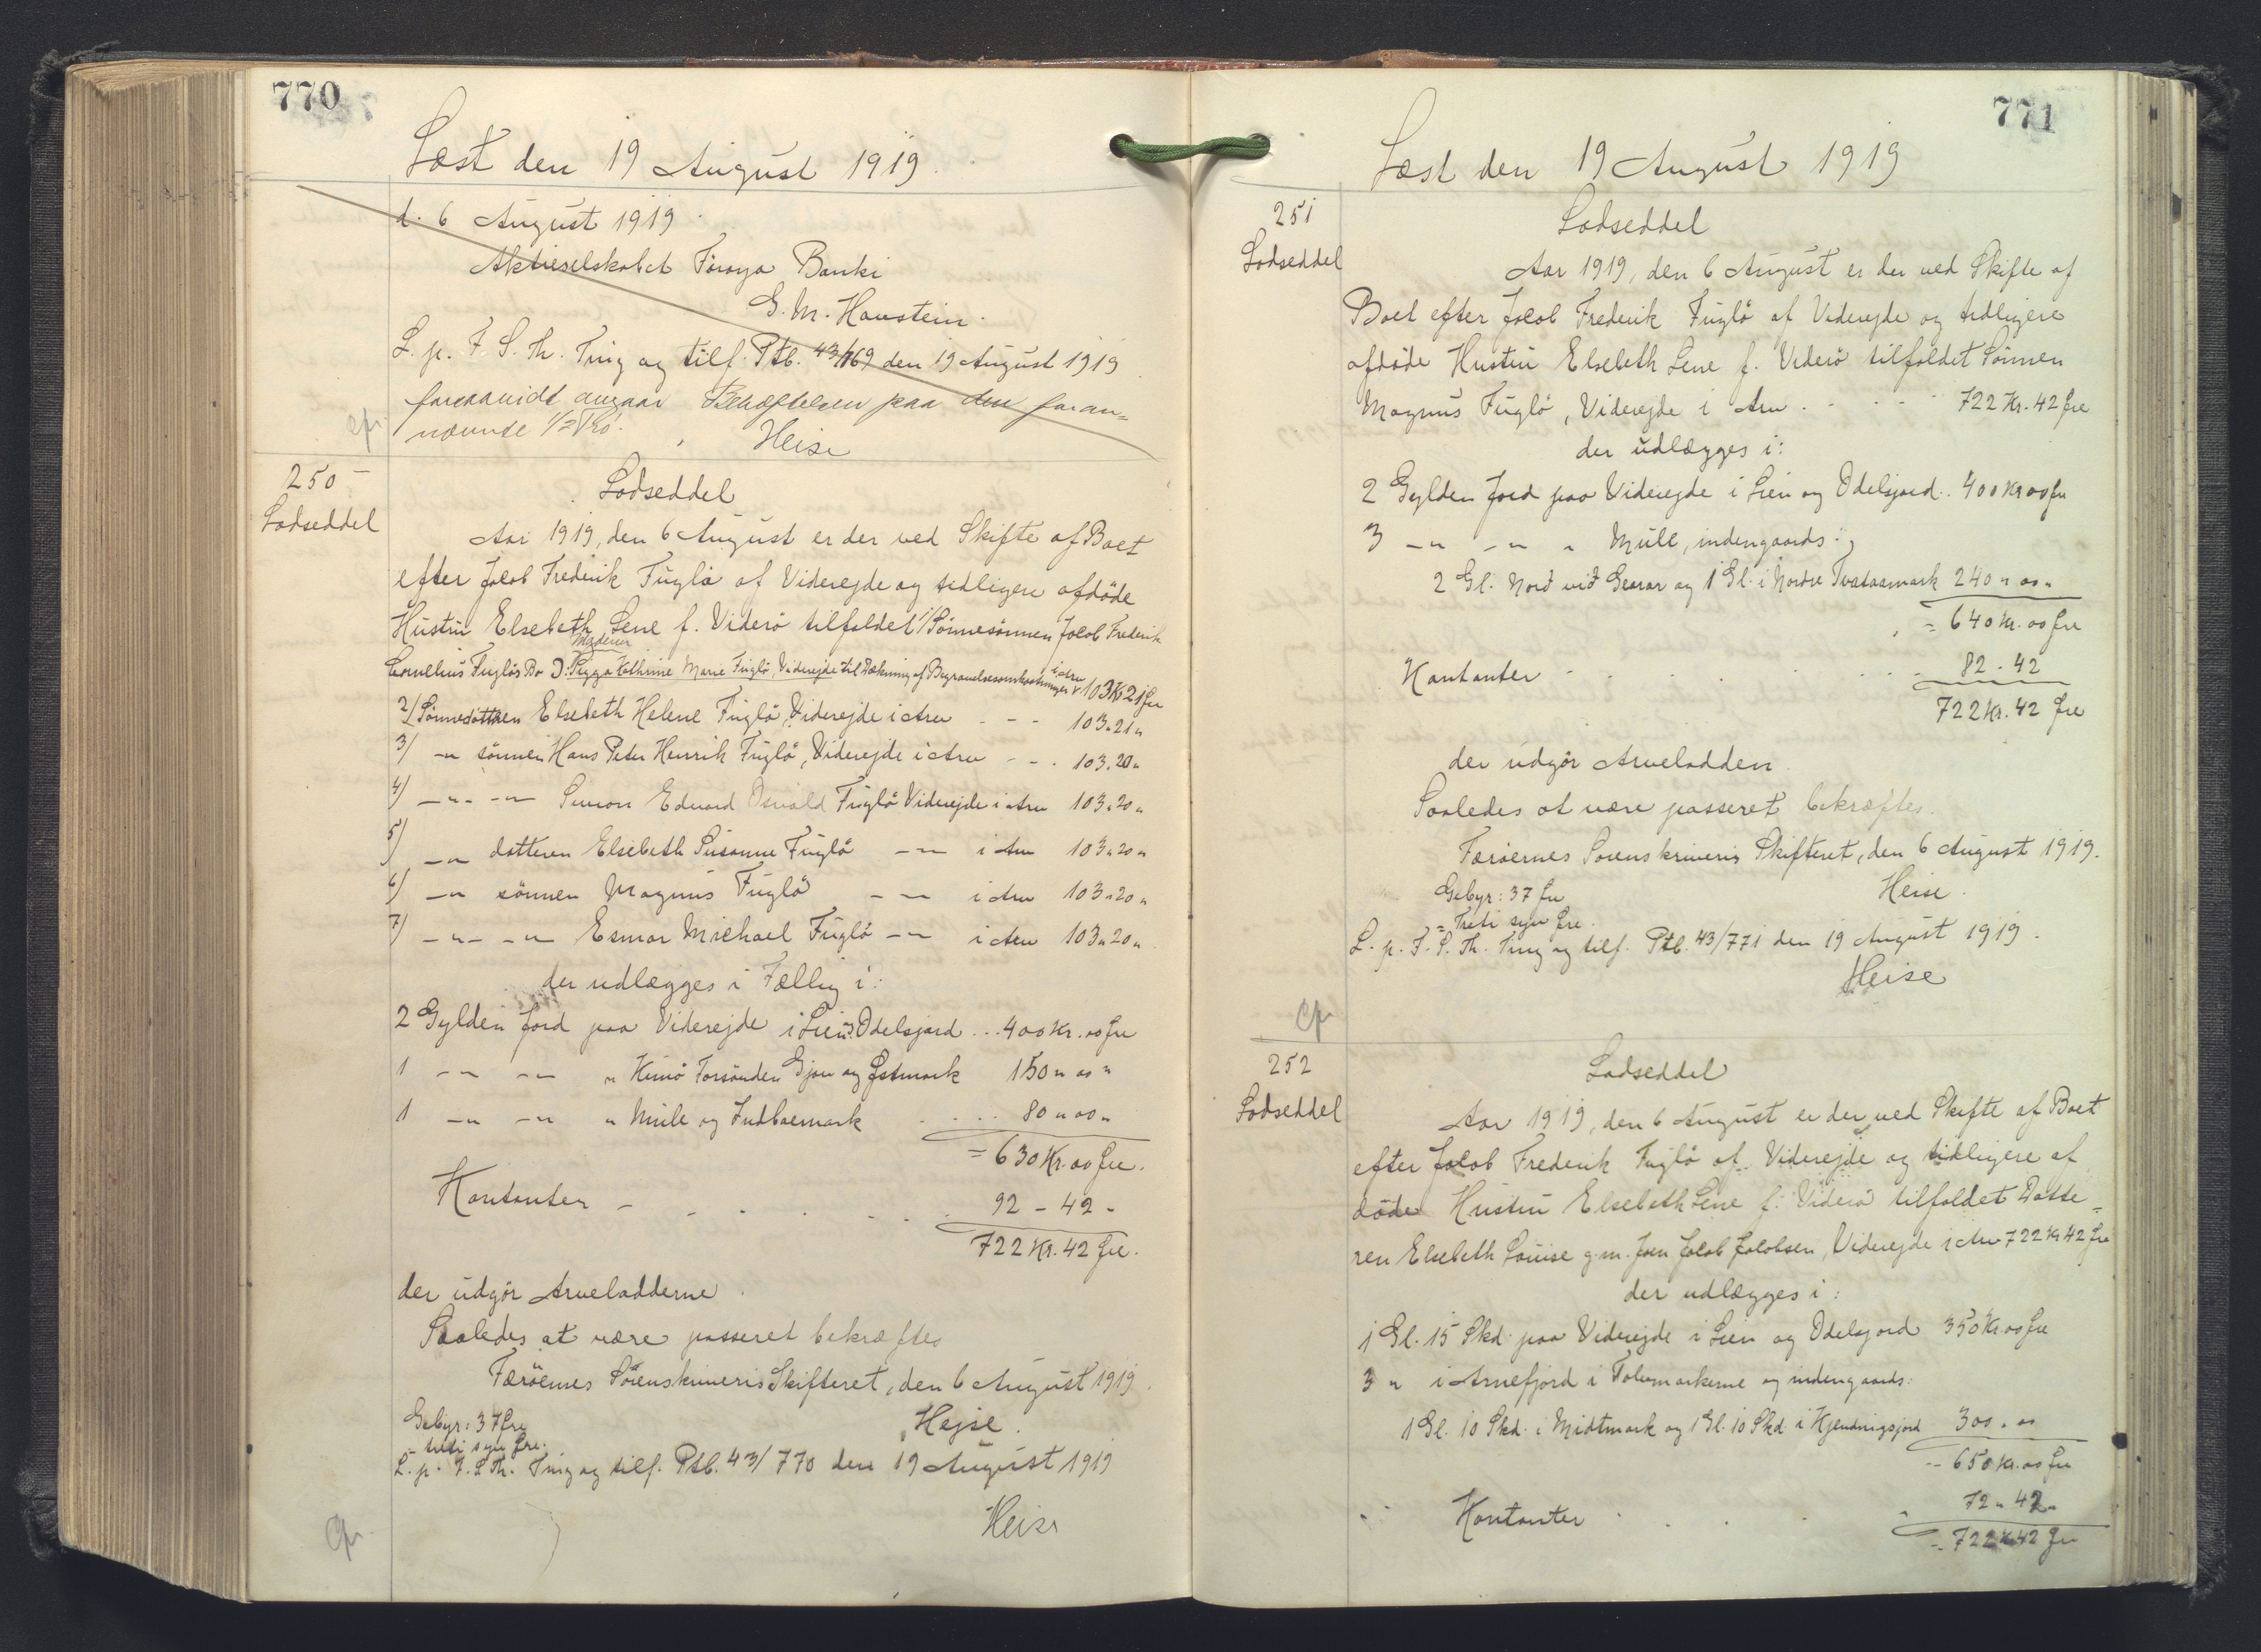 770
Læst den 19 August 1919.
d. 6 August 1919
Aktieselskabet Föroya Banki
G. M. Hanstein.
L. p. F. S. Th. Ting og tilf. Ptb. 43/769 den 19 August 1919
foraavidt angaar Behæftelsen paa den foran=
nævnte 1/2 Pró.
Heise
cfr
250
Lodseddel
Lodseddel
Aar 1919, den 6 August er der ved Skifte af Boet
efter Jacob Frederik Fuglö af Viderejde og tidligere afdöde
Hustru Elsebeth Lene f. Viderö tilfaldet 1/ Sönnesönnen Jacob Frederik
Moderen
Cornelius Fuglös Bo ɔ: Sigga Kathrine Marie Fuglö, Viderejde til Dækning af Begravelsesomkostninger i Arv 103 Kr 21 Øre
2/ Sönnedatteren Elsebeth Helene Fuglö, Viderejde i Arv - - 103 " 21 "
3/ -"- sönnen Hans Peter Henrik Fuglö, Viderejde i Arv - - . 103. 20 "
4/ -"- -"- Simon Edvard Osvald Fuglö Viderejde i Arv 103 " 20 "
5/ -"- datteren Elsebeth Susanne Fuglö -"- i Arv 103 " 20 "
6/ -"- sönnen Magnus Fuglö -"- i Arv 103 " 20 "
7/ -"- -"- Esmar Michael Fuglö -"- i Arv 103 " 20 "
der udlægges i Fællig i:
2 Gylden Jord paa Viderejde i Lien Odelsjord ... 400 Kr. 00 Øre
1 -"- -"- " Kunö Forsönden Gjov og Østmark 150 " 00 "
1 -"- -"- " Mule og Indbæmark ... 80 " 00 "
= 630 Kr. 00 Øre.
Kontanter - - . . - . . 92 - 42 -
722 Kr. 42 Øre.
der udgör Arvelodderne.
Saaledes at være passeret bekræftes
Færöernes Sörenskriveris Skifteret, den 6 August 1919.
Gebyr: 37 Øre
Hejse.
= treti syv Øre.
L. p. F. S. Th. Ting og tilf. Ptb. 43/770 den 19 August 1919
Heise
cfr.
771
Læst den 19 August 1919
251
Lodseddel
Lodseddel
Aar 1919, den 6 August er der ved Skifte af
Boet efter Jacob Frederik Fuglö af Viderejde og tidligere
afdöde Hustru Elsebeth Lene f. Viderö tilfaldet Sönnen
Magnus Fuglö, Viderejde i Arv . - - - - 722 Kr. 42 Øre
der udlægges i:
2 Gylden Jord paa Viderejde i Lien og Odelsjord .. 400 Kr 00 Øre
3 -"- -"- " Mule, indengaards:
2 Gl. Nord við Gearar og 1 Gl. i Nordre Tvataamark 240 " 00 "
= 640 Kr. 00 Øre
Kontanter - . . . . . . 82 - 42
722 Kr. 42 Øre
der udgör Arvelodden.
Saaledes at være passeret bekræftes.
Færöernes Sorenskriveris Skifteret, den 6 August 1919.
Gebyr: 37 Øre
Heise.
= Treti syv Øre.
L. p. F. S. Th. Ting og tilf. Ptb. 43/771 den 19 August 1919.
Heise
cfr
252
Lodseddel
Lodseddel
Aar 1919, den 6 August er der ved Skifte af Boet
efter Jacob Frederik Fuglö af Viderejde og tidligere af
döde Hustru Elsebeth Lene f. Viderö tilfaldet Datte=
ren Elsebeth Louise g. m. Joen Jacob Jacobsen, Viderejde i Arv 722 Kr 42 Øre
der udlægges i:
1 Gl. 15 Skd. paa Viderejde i Lien og Odelsjord 350 Kr. 00 Øre
3 " i Arnefjord i Tolvmarkerne og indengaards:
1 Gl. 10 Skd. i Midtmark og 1 Gl. 10 Skd. i Hjendringsjord 300 . 00
= 650 Kr. 00 Øre
Kontanter . . . . 72 " 42 "
= 722 Kr 42 Øre